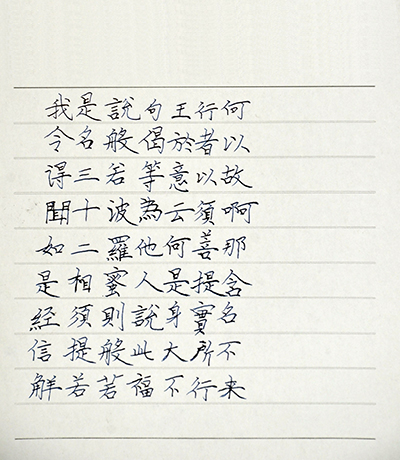 何以故啊那含名不来
行者以須善提實所行
王於意云何是身大不
句偈等為他人說此福
說般若波羅蜜則般若
是名三十二相須提若
我令得聞如是經信解